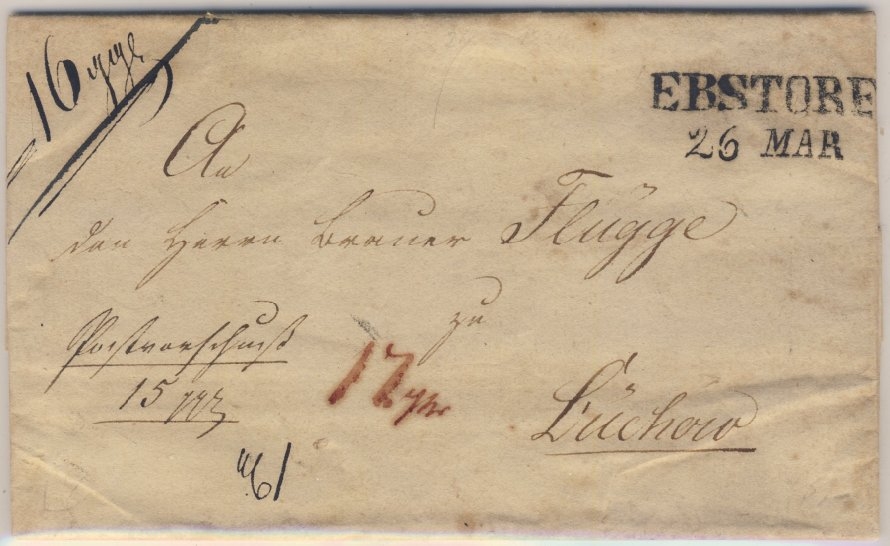 16 ggr
EBSTORF
26 MAR
An
den Herrn Brauer Flügge
zu
Postvorschuß
15
17 ggr
Lüchow